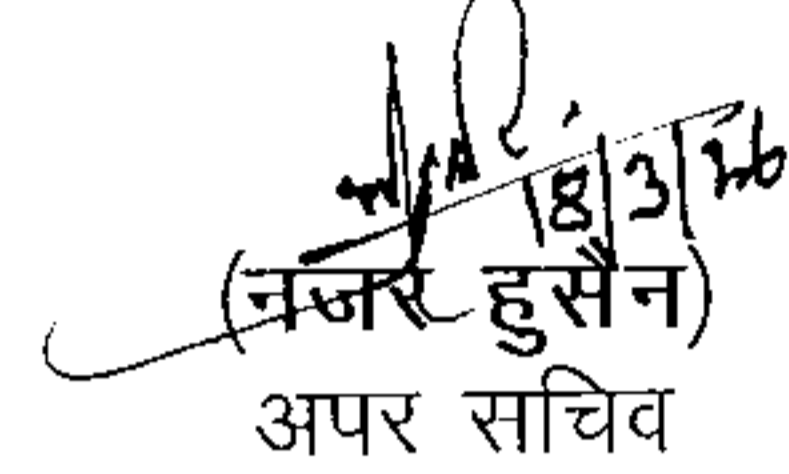 18/3/26
(नजर हुसैन)
अपर सचिव